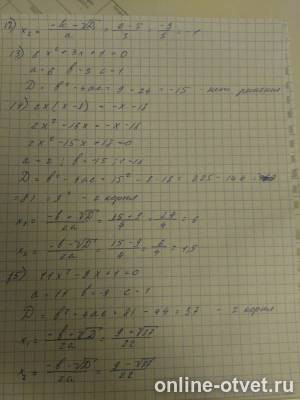 x₂ = (-b - √D)/a
13) 6x² + 3x + 1 = 0
a = 6 b = 3 c = 1
D = b² - 4ac = 9 - 24 = -15 - нет решения
14) 2x(x - 8) = -x - 18
2x² - 16x = -x - 18
2x² - 15x + 18 = 0
a = 2; b = -15; c = 18
D = b² - 4ac = 15² - 8·18 = 225 - 144 =
= 81 = 9² - 2 корня
x₁ = (-b + √D)/2a = (15 + 9)/4 = 24/4 = 6
x₂ = (-b - √D)/2a = (15 - 9)/4 = 6/4 = 1,5
15) 11x² - 9x + 1 = 0
a = 11 b = -9 c = 1
D = b² - 4ac = 81 - 44 = 37 - 2 корня
x₁ = (-b + √D)/2a = (9 + √37)/22
x₂ = (-b - √D)/2a = (9 - √37)/22
online-otvet.ru